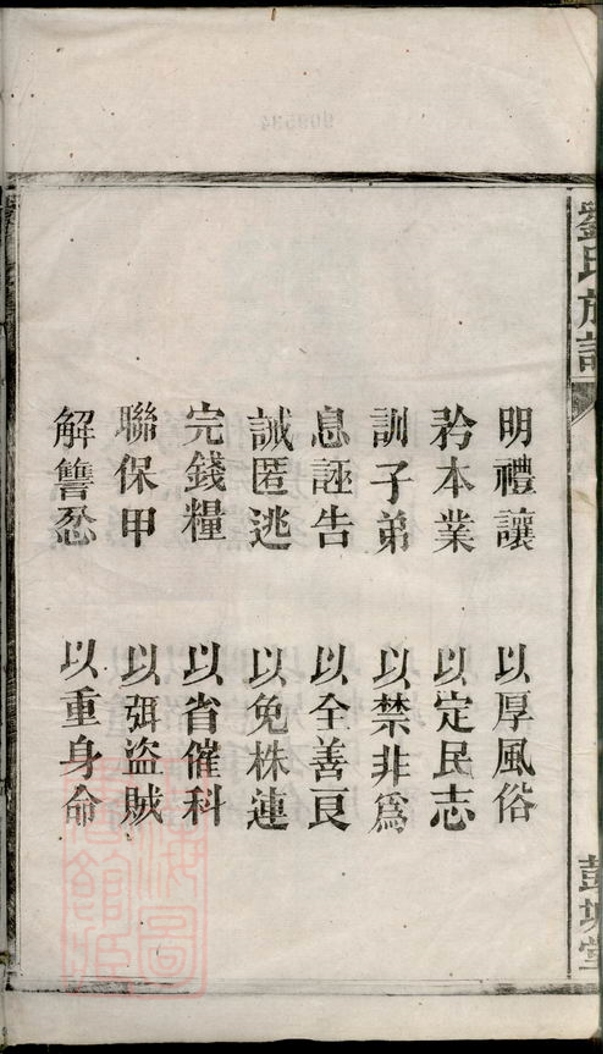 劉氏族譜
明禮讓 以厚風俗
矜本業 以定民志
訓子弟 以禁非爲
息誣告 以全善良
誡匿逃 以免株連
完錢糧 以省催科
聯保甲 以弭盜賊
解讐忿 以重身命
彭城堂